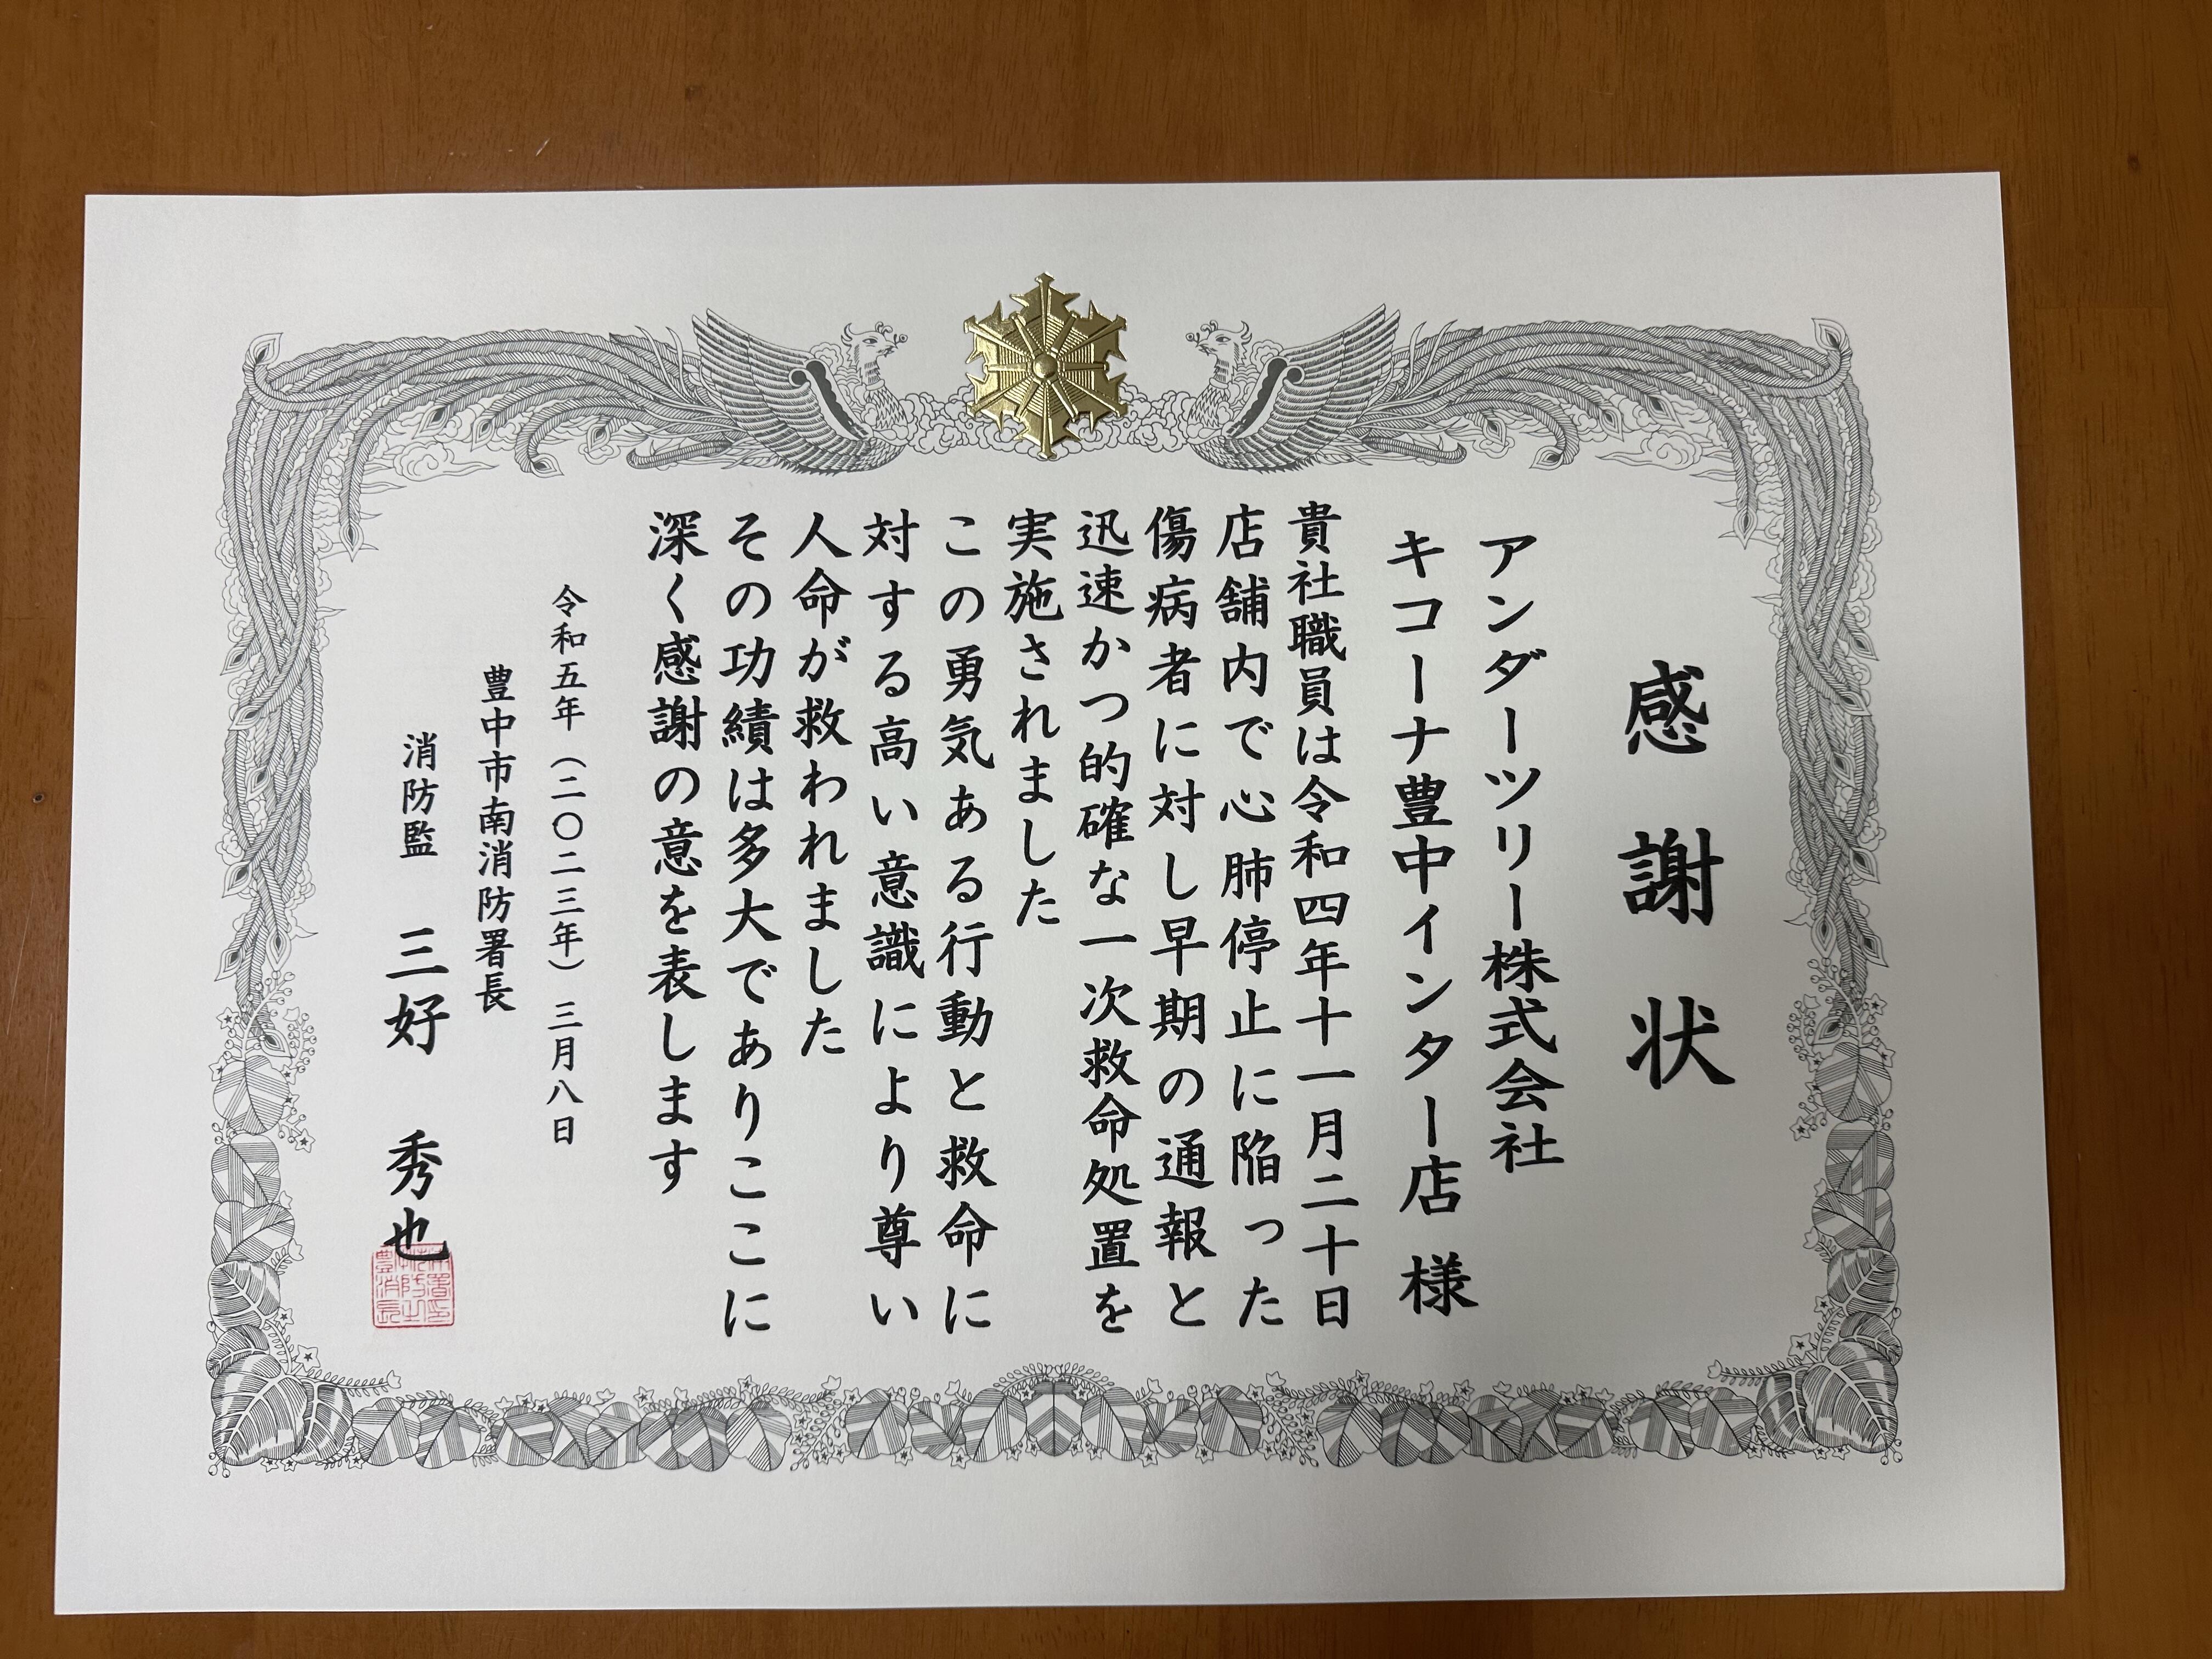 感謝状
アンダーツリー株式会社
キコーナ豊中インター店 様
貴社職員は令和四年十一月二十日
店舗内で心肺停止に陥った
傷病者に対し早期の通報と
迅速かつ的確な一次救命処置を
実施されました
この勇気ある行動と救命に
対する高い意識により尊い
人命が救われました
その功績は多大でありここに
深く感謝の意を表します
令和五年(二〇二三年)三月八日
豊中市南消防署長
消防監 三好 秀也